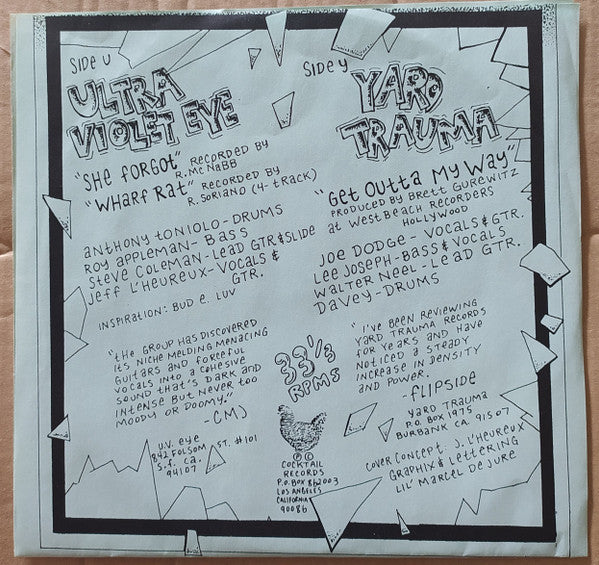 SIDE U
ULTRA
VIOLET EYE
"SHE FORGOT" RECORDED BY
R. McNABB
"WHARF RAT" RECORDED BY
R. SORIANO (4-TRACK)
ANTHONY TONIOLO - DRUMS
ROY APPLEMAN - BASS
STEVE COLEMAN - LEAD GTR & SLIDE
JEFF L'HEUREUX - VOCALS &
GTR.
INSPIRATION: BUD E. LUV
"THE GROUP HAS DISCOVERED
ITS NICHE MELDING MENACING
GUITARS AND FORCEFUL
VOCALS INTO A COHESIVE
SOUND THAT'S DARK AND
INTENSE BUT NEVER TOO
MOODY OR DOOMY."
- CMJ
U.V. EYE
842 FOLSOM ST. #101
S.F. CA.
94107
33 1/3
RPMS
℗ ©
COCKTAIL
RECORDS
P.O. BOX 862003
LOS ANGELES
CALIFORNIA
90086
SIDE Y
YARD
TRAUMA
"GET OUTTA MY WAY"
PRODUCED BY BRETT GUREWITZ
AT WESTBEACH RECORDERS
HOLLYWOOD
JOE DODGE - VOCALS & GTR.
LEE JOSEPH - BASS & VOCALS
WALTER NEEL - LEAD GTR.
DAVEY - DRUMS
"I'VE BEEN REVIEWING
YARD TRAUMA RECORDS
FOR YEARS AND HAVE
NOTICED A STEADY
INCREASE IN DENSITY
AND POWER.
- FLIPSIDE
YARD TRAUMA
P.O. BOX 1975
BURBANK CA. 91507
COVER CONCEPT J. L'HEUREUX
GRAPHIX & LETTERING
LIL' MARCEL DE JURE